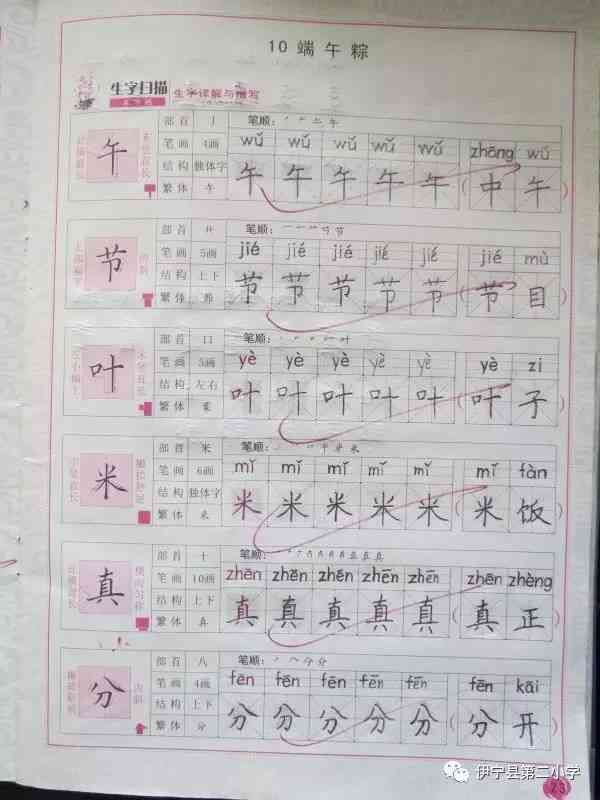 10 端 午 粽
生字扫描
生字详解与描写
午
部首 丿 笔顺:
笔画 4画 wǔ wǔ wǔ wǔ wǔ zhōng wǔ
结构 独体字 午 午 午 午 午 ( 中 午 )
繁体 午
节
部首 艹 笔顺:
笔画 5画 jié jié jié jié jié jié mù
结构 上下 节 节 节 节 节 ( 节 目 )
繁体
叶
部首 口 笔顺:
笔画 5画 yè yè yè yè yè yè zi
结构 左右 叶 叶 叶 叶 叶 ( 叶 子 )
繁体
米
部首 米 笔顺:
笔画 6画 mǐ mǐ mǐ mǐ mǐ mǐ fàn
结构 独体字 米 米 米 米 米 ( 米 饭 )
繁体 米
真
部首 十 笔顺:
笔画 10画 zhēn zhēn zhēn zhēn zhēn zhēn zhèng
结构 上下 真 真 真 真 真 ( 真 正 )
繁体 真
分
部首 八 笔顺:
笔画 4画 fēn fēn fēn fēn fēn fēn kāi
结构 上下 分 分 分 分 分 ( 分 开 )
繁体 分
伊宁县第二小学